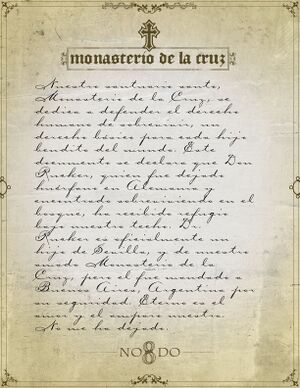 monasterio de la cruz
Nuestro santuario santo,
Monasterio de la Cruz, se
dedica a defender el derecho
humano de sobrevivir, un
derecho básico para cada hijo
bendito del mundo. Este
documento se declara que Don
Rueker, quien fue dejado
huérfano en Alemania y
encontrado sobreviviendo en el
bosque, ha recibido refugio
bajo nuestro techo. Dr.
Rueker es oficialmente un
hijo de Sevilla, y de nuestro
amado Monasterio de la
Cruz, pero el fue mandado a
Buenos Aires, Argentina por
su seguridad. Eterno es el
amor y el amparo nuestro.
No me ha dejado.
NO8DO